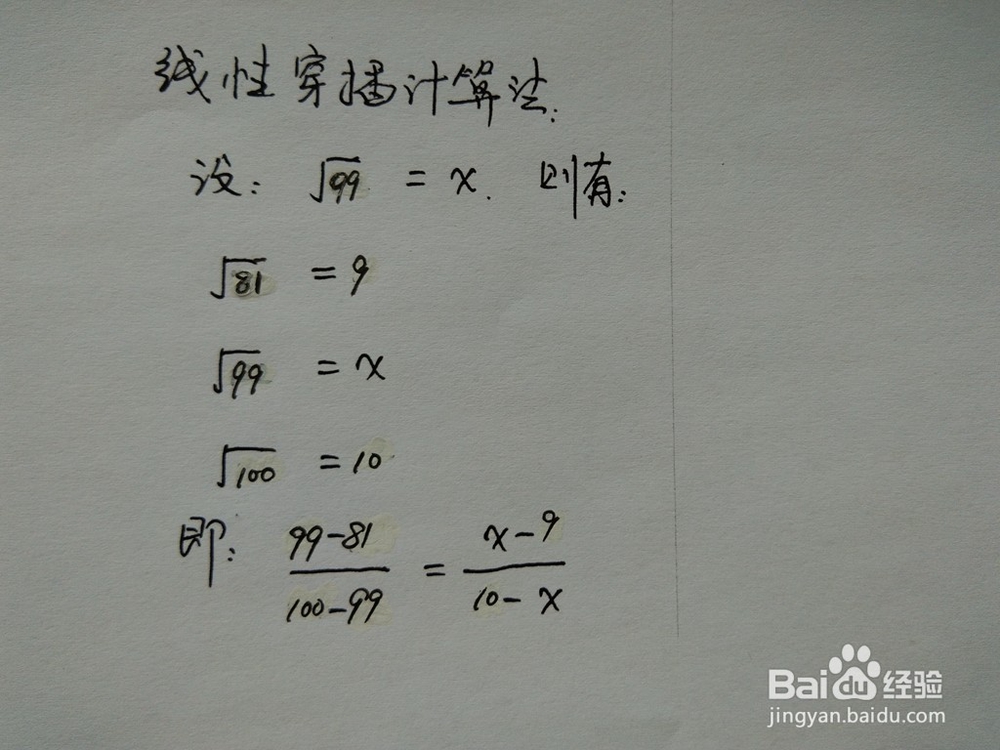 线性穿插计算法:
设: √99 = x. 则有:
√81 = 9
√99 = x
√100 = 10
即: (99-81)/(100-99) = (x-9)/(10-x)
Baidu 经验
jingyan.baidu.com